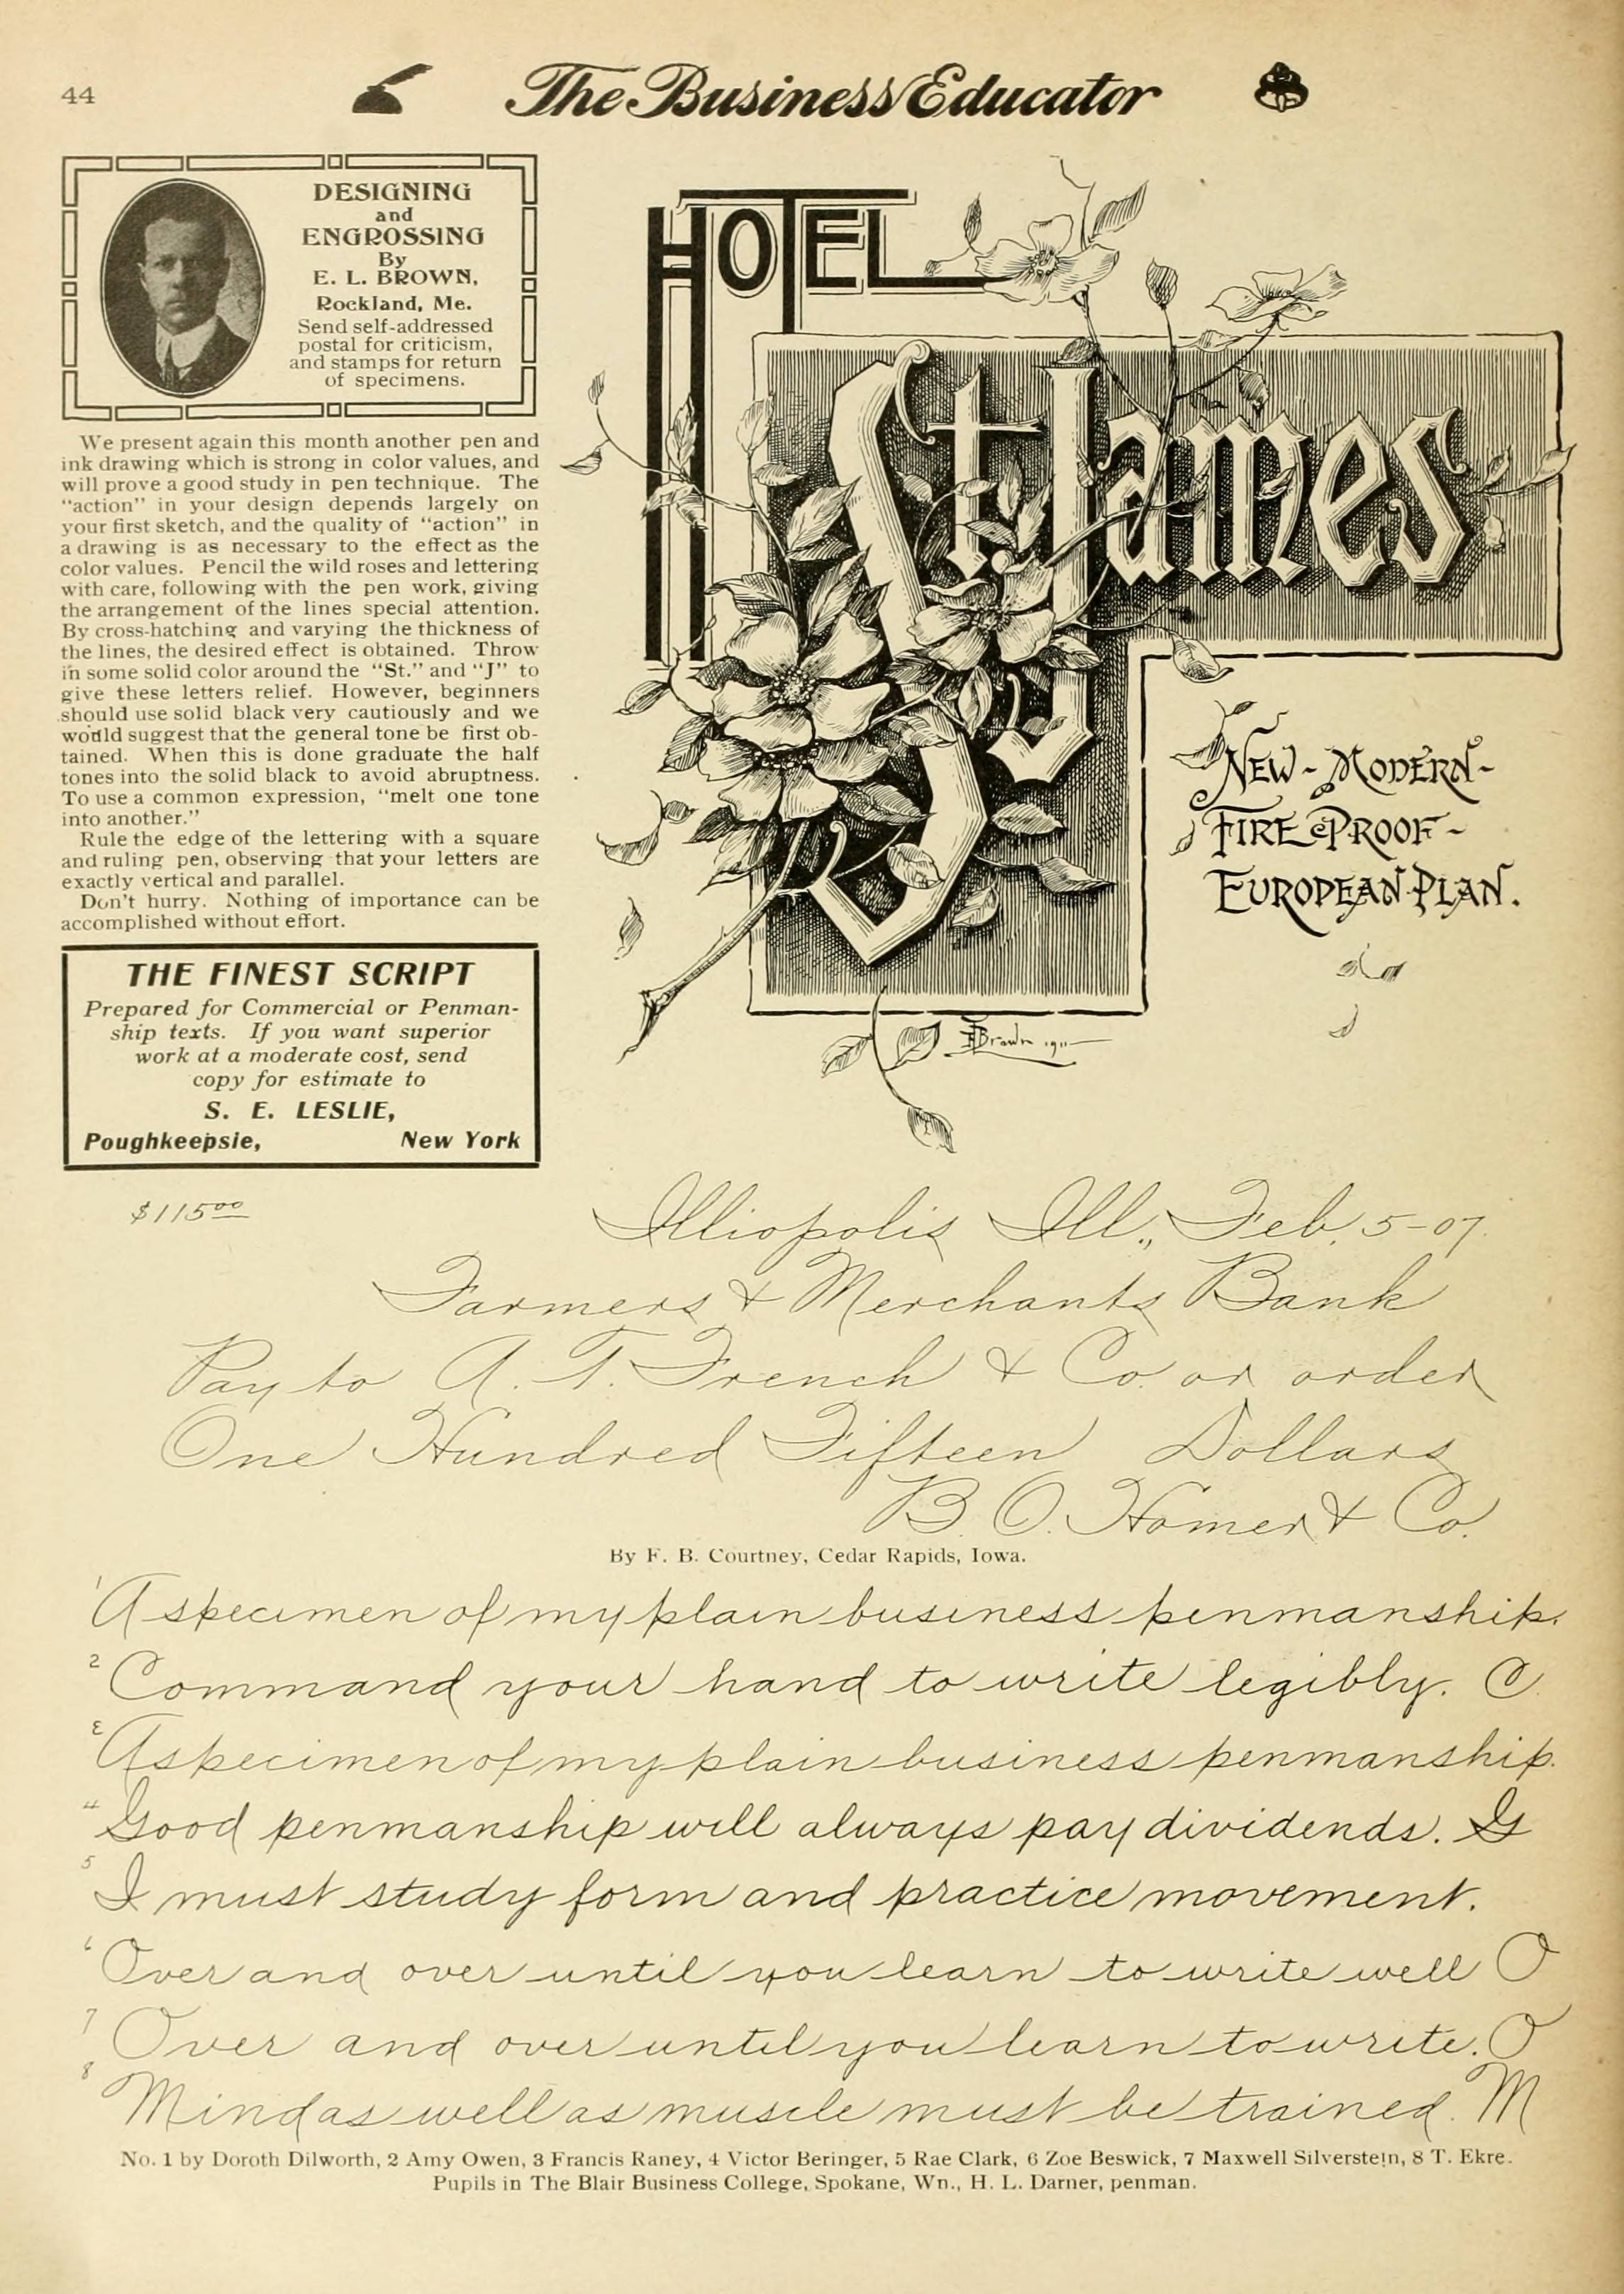 44
The Business Educator
DESIGNING
and
ENGROSSING
By
E. L. BROWN,
Rockland, Me.
Send self-addressed
postal for criticism,
and stamps for return
of specimens.
We present again this month another pen and
ink drawing which is strong in color values, and
will prove a good study in pen technique. The
"action" in your design depends largely on
your first sketch, and the quality of "action" in
a drawing is as necessary to the effect as the
color values. Pencil the wild roses and lettering
with care, following with the pen work, giving
the arrangement of the lines special attention.
By cross-hatching and varying the thickness of
the lines, the desired effect is obtained. Throw
in some solid color around the "St." and "J" to
give these letters relief. However, beginners
should use solid black very cautiously and we
would suggest that the general tone be first ob-
tained. When this is done graduate the half
tones into the solid black to avoid abruptness.
To use a common expression, "melt one tone
into another."
Rule the edge of the lettering with a square
and ruling pen, observing that your letters are
exactly vertical and parallel.
Don't hurry. Nothing of importance can be
accomplished without effort.
THE FINEST SCRIPT
Prepared for Commercial or Penman-
ship texts. If you want superior
work at a moderate cost, send
copy for estimate to
S. E. LESLIE,
Poughkeepsie, New York
HOTEL
St James
NEW - MODERN -
FIRE PROOF -
EUROPEAN PLAN.
EL Brown 1911
$115 00
Illiopolis Ill., Feb. 5-07.
Farmers & Merchants Bank
Pay to A. T. French & Co. or order
One Hundred Fifteen Dollars
B. O. Homer & Co.
By F. B. Courtney, Cedar Rapids, Iowa.
1 A specimen of my plain business penmanship.
2 Command your hand to write legibly. C
3 A specimen of my plain business penmanship.
4 Good penmanship will always pay dividends. G
5 I must study form and practice movement.
6 Over and over until you learn to write well O
7 Over and over until you learn to write. O
8 Mind as well as muscle must be trained. M
No. 1 by Doroth Dilworth, 2 Amy Owen, 3 Francis Raney, 4 Victor Beringer, 5 Rae Clark, 6 Zoe Beswick, 7 Maxwell Silverstein, 8 T. Ekre.
Pupils in The Blair Business College, Spokane, Wn., H. L. Darner, penman.